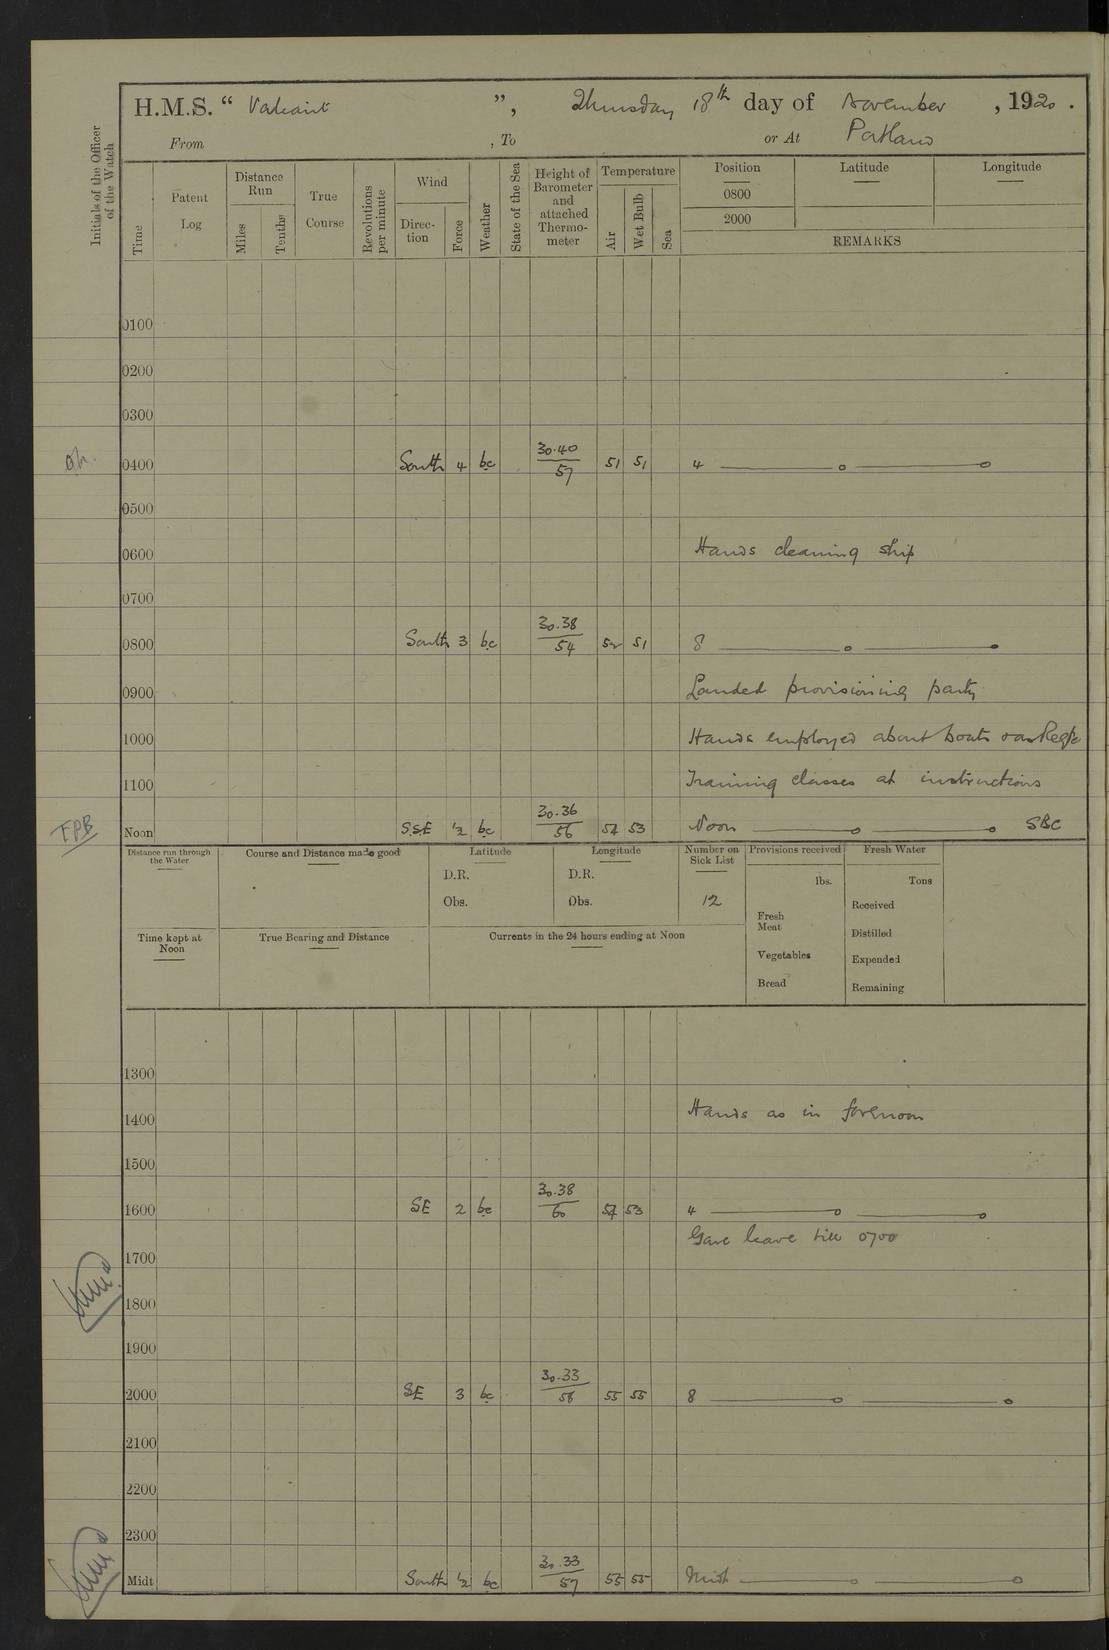 H.M.S. " Valiant ", Thursday 18th day of November, 1920.
From , To or At Portland
Initials of the Officer of the Watch
Time
Patent Log
Distance Run
Miles
Tenths
True Course
Revolutions per minute
Wind
Direction
Force
Weather
State of the Sea
Height of Barometer and attached Thermometer
Temperature
Air
Wet Bulb
Sea
Position Latitude Longitude
0800
2000
REMARKS
0100
0200
0300
0400 South 4 bc 30.40/57 51 51 4
0500
0600 Hands cleaning ship
0700
0800 South 3 bc 30.38/54 52 51 8
0900 Landed provisioning party
1000 Hands employed about boats
1100 Training classes at instructions
FPB Noon SSE ½ bc 30.36/56 54 53 Noon SBC
Distance run through the Water
Course and Distance made good
Latitude
D.R.
Obs.
Longitude
D.R.
Obs.
Number on Sick List
12
Provisions received
lbs.
Fresh Meat
Vegetables
Bread
Fresh Water
Tons
Received
Distilled
Expended
Remaining
Time kept at Noon
True Bearing and Distance
Currents in the 24 hours ending at Noon
1300
1400 Hands as in forenoon
1500
1600 SE 2 bc 30.38/60 54 53 4
Gave leave till 0700
1700
1800
1900
2000 SE 3 bc 30.33/58 55 55 8
2100
2200
2300
Midt South ½ bc 30.33/57 55 55 Midt